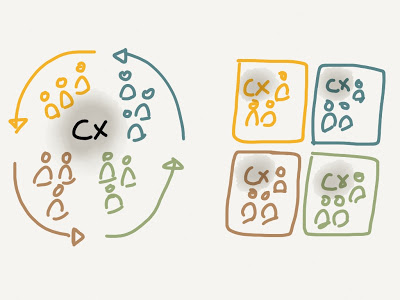 CX
CX
CX
CX
CX